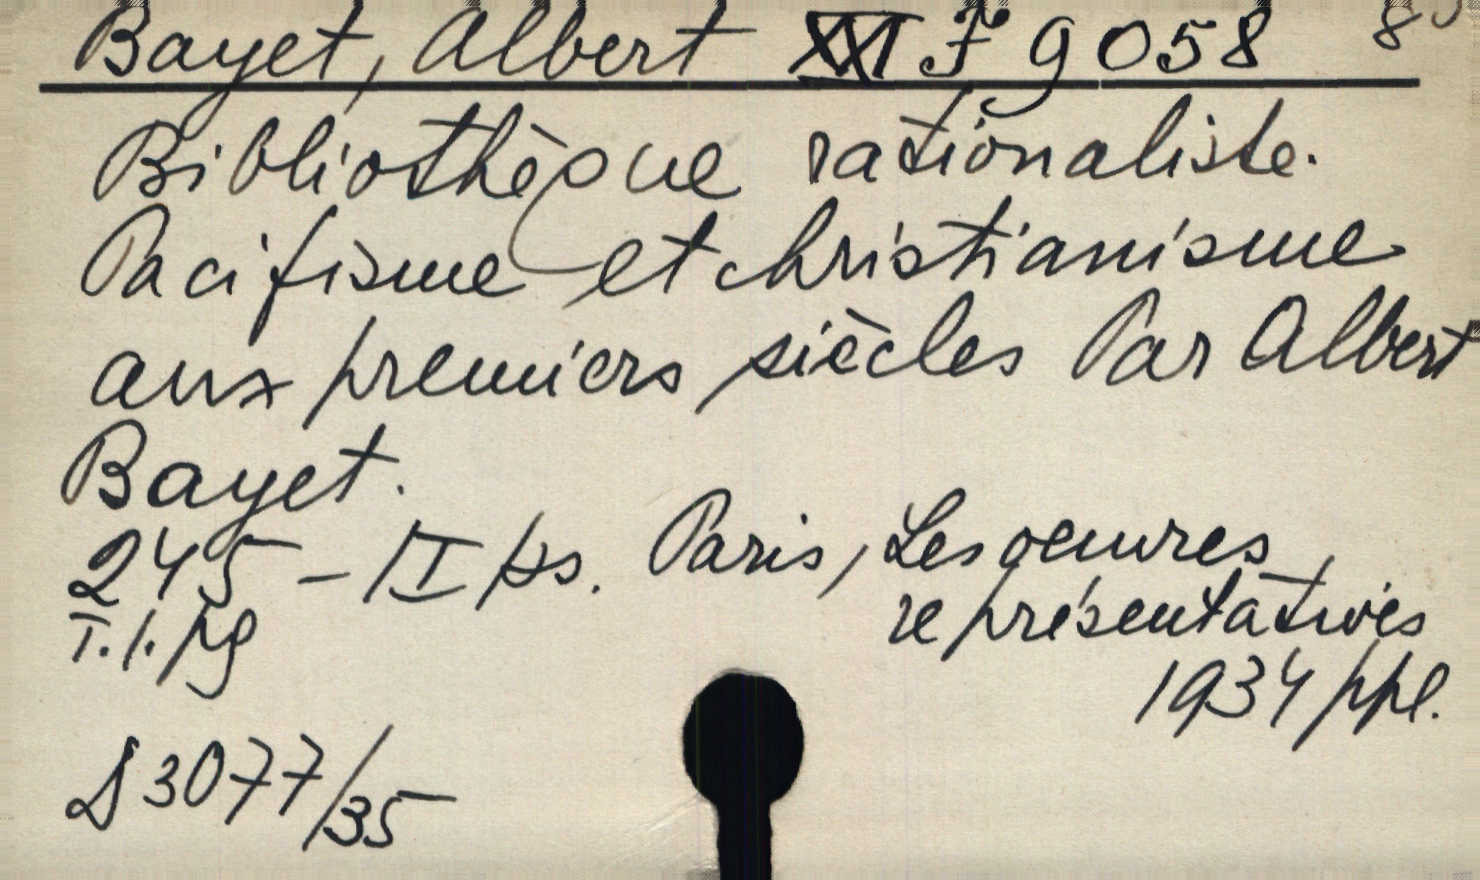 Bayet, Albert XXI F 9058 8°
Bibliothèque rationaliste.
Pacifisme et christianisme
aux premiers siècles Par Albert
Bayet.
245 – II ps. Paris, Les oeuvres
représentatives
1 t. l. pg
1934 ppl.
3077/35